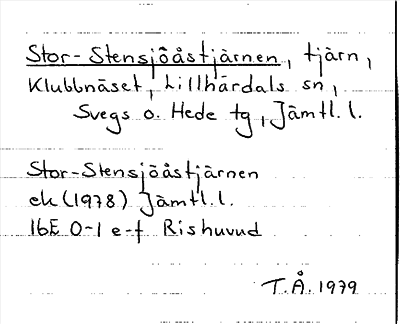 Stor-Stensjöåstjärnen, tjärn,
Klubbnäset, Lillhärdals sn,
Svegs o. Hede tg, Jämtl. l.
Stor-Stensjöåstjärnen
ek (1978) Jämtl. l.
16E 0-1 e-f Rishuvud
T.Å. 1979